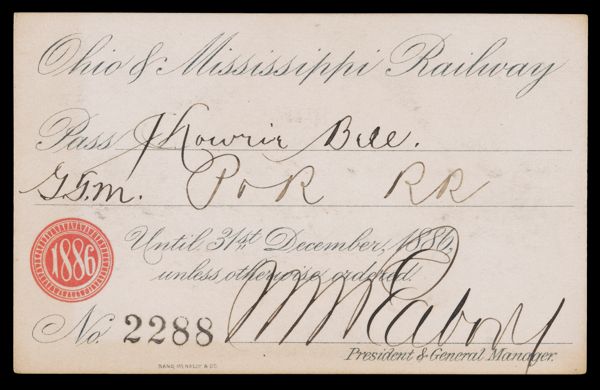 Ohio & Mississippi Railway
Pass J Lowrie Bell.
G.T.M. P & R RR
1886
Until 31st December, 1886,
unless otherwise ordered.
No. 2288
President & General Manager.
RAND, McNALLY & CO.